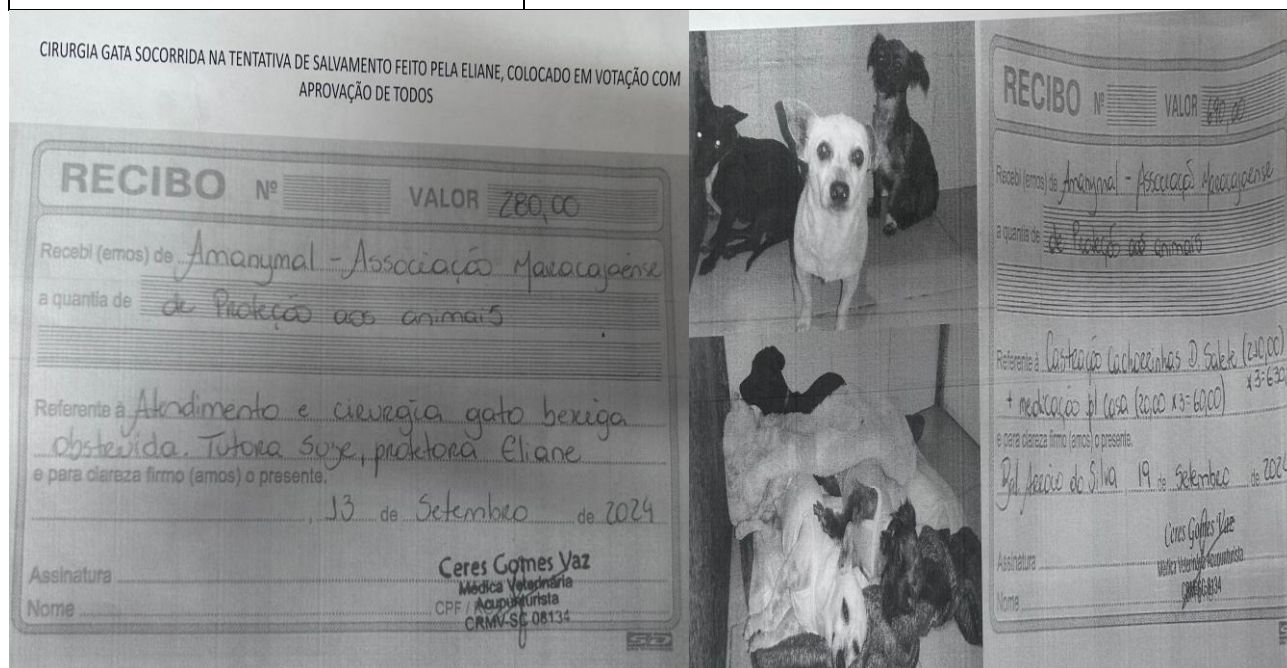 CIRURGIA GATA SOCORRIDA NA TENTATIVA DE SALVAMENTO FEITO PELA ELIANE, COLOCADO EM VOTAÇÃO COM
APROVAÇÃO DE TODOS
RECIBO Nº VALOR 280,00
Recebi (emos) de Amanymal - Associação Maracajaense
a quantia de de Proteção aos animais
Referente à Atendimento e cirurgia gato bexiga
obstruída. Tutora Suze, protetora Eliane
e para clareza firmo (amos) o presente.
, 13 de Setembro de 2024
Assinatura
Nome
CPF /
Ceres Gomes Vaz
Médica Veterinária
Acupunturista
CRMV-SC 08134
RECIBO Nº VALOR 690,00
Recebi (emos) de Amanymal - Associação Maracajaense
a quantia de de Proteção aos animais
Referente à Castração Cachorrinhas D. Salete (210,00)
x3=630
+ medicação p/ casa (20,00 x3=60,00)
e para clareza firmo (amos) o presente.
Bal. Arroio do Silva, 19 de Setembro de 2024
Assinatura
Nome
Ceres Gomes Vaz
Médica Veterinária Acupunturista
CRMV-SC 08134